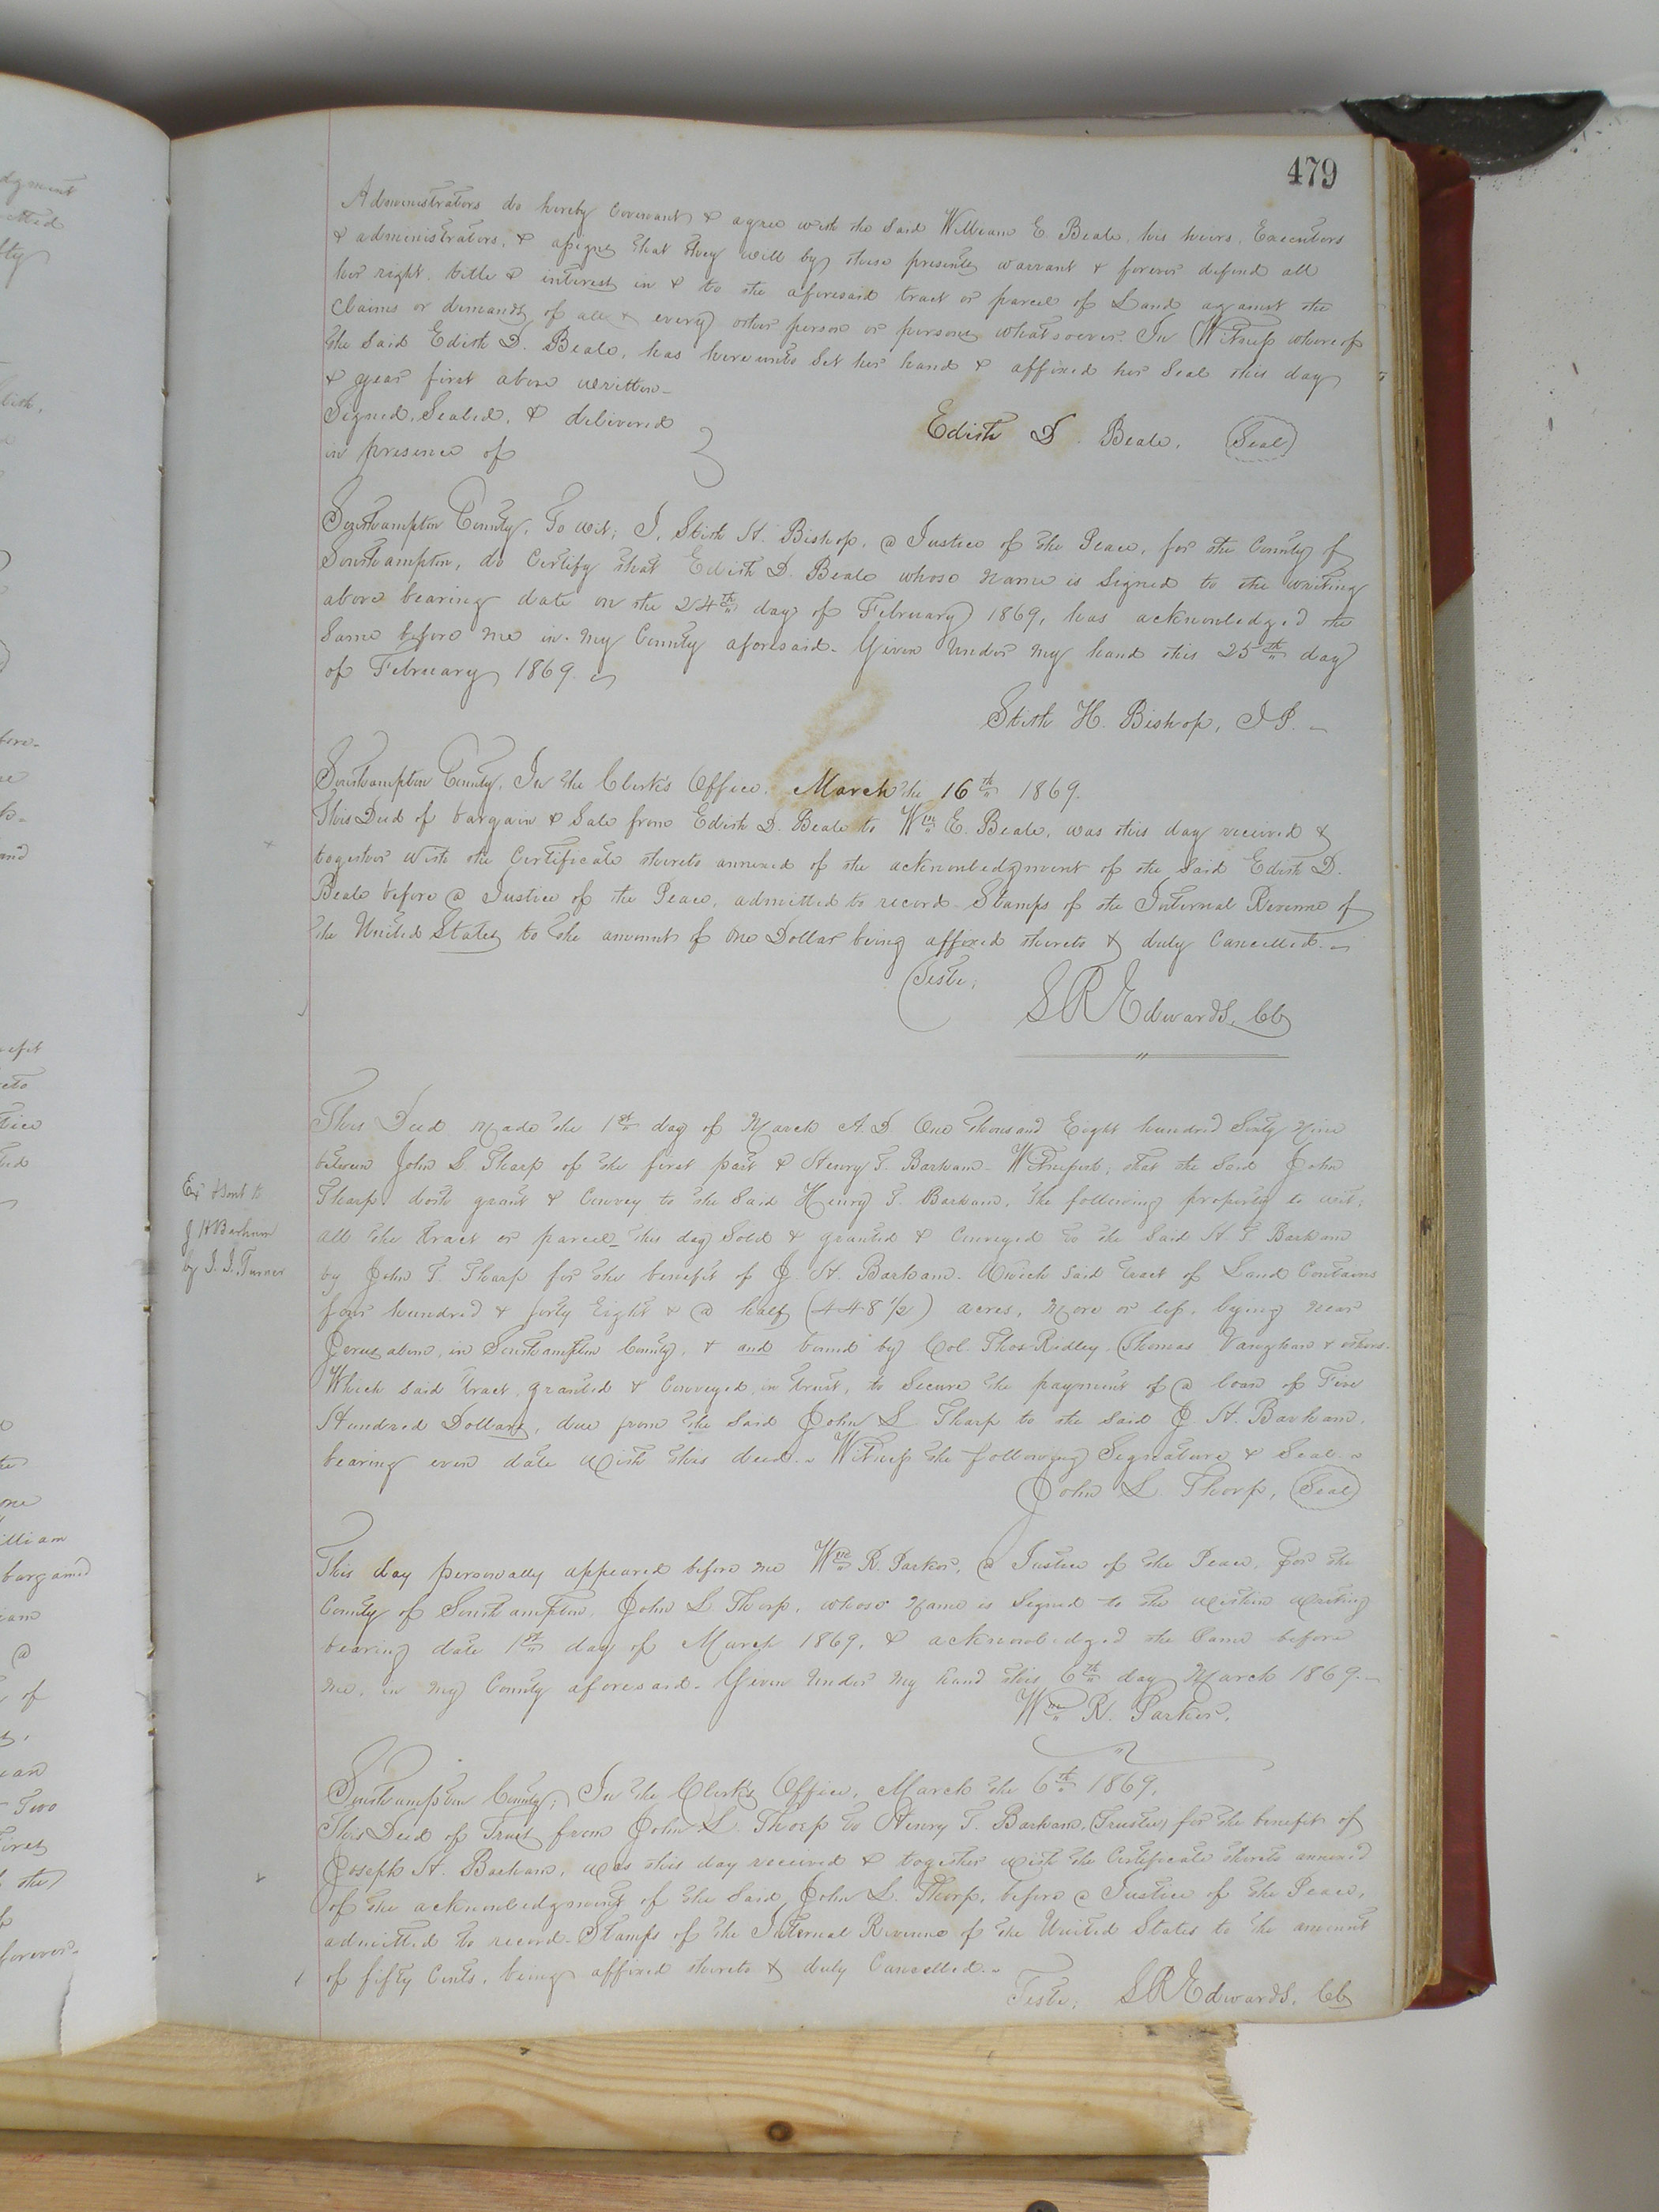 479
Administrators do hereby Covenant & agree with the Said William E. Beale, his heirs, Executors
& administrators, & assigns that they will by these presents warrant & forever defend all
her right, title & interest in & to the aforesaid tract or parcel of Land against the
Claims or demands of all & every other person or persons whatsoever. In Witness whereof
the Said Edith D. Beale, has hereunto Set her hand & affixed her Seal this day
& year first above written—
Signed, Sealed, & delivered
in presence of
Edith D. Beale, (Seal)
Southampton County, To wit; I, Stith H. Bishop, a Justice of the Peace, for the County of
Southampton, do Certify that Edith D. Beale whose name is Signed to the writing
above bearing date on the 24th day of February 1869, has acknowledged the
Same before me in my County aforesaid. Given Under my hand this 25th day
of February 1869.
Stith H. Bishop, J P. —
Southampton County, In the Clerk's Office. March the 16th 1869.
This Deed of bargain & Sale from Edith D. Beale to Wm E. Beale, was this day received &
together with the Certificate thereto annexed of the acknowledgment of the Said Edith D.
Beale before a Justice of the Peace, admitted to record. Stamps of the Internal Revenue of
the United States to the amount of One Dollar being affixed thereto & duly Cancelled.—
Teste;
S R Edwards, CC
This Deed Made the 1st day of March A.D. One thousand Eight hundred Sixty Nine
between John L. Tharp of the first part & Henry T. Barham. Witnesseth; that the Said John
Tharp doth grant & Convey to the Said Henry T. Barham, the following property to wit;
Ex & Sent to
J H Barham
by J. J. Turner
all the tract or parcel this day Sold & granted & Conveyed to the Said H. T. Barham
by John T. Tharp for the benefit of J. H. Barham. Which Said tract of Land Contains
four hundred & forty Eight & a half (448 1/2) acres, More or less, lying near
Jerusalem, in Southampton County, & and bound by Col. Thos Ridley, Thomas Vaughan & others.
Which Said tract, granted & Conveyed in trust, to Secure the payment of a loan of Five
Hundred Dollars, due from the Said John L Tharp to the Said J. H. Barham,
bearing even date with this deed. Witness the following Signature & Seal
John L. Thorp, (Seal)
This day personally appeared before me Wm R. Parker, a Justice of the Peace, for the
County of Southampton, John L. Thorp, whose Name is Signed to the within writing
bearing date 1st day of March 1869, & acknowledged the Same before
me, in my County aforesaid. Given Under my hand this 6th day March 1869.—
Wm R. Parker.
Southampton County; In the Clerk's Office, March the 6th 1869.
This Deed of Trust from John L. Thorp to Henry T. Barham, (Trustee) for the benefit of
Joseph H. Barham, was this day received & together with the Certificate thereto annexed
of the acknowledgment of the Said John L. Thorp, before a Justice of the Peace,
admitted to record. Stamps of the Internal Revenue of the United States to the amount
of fifty Cents, being affixed thereto & duly Cancelled.
Teste; S R Edwards, CC